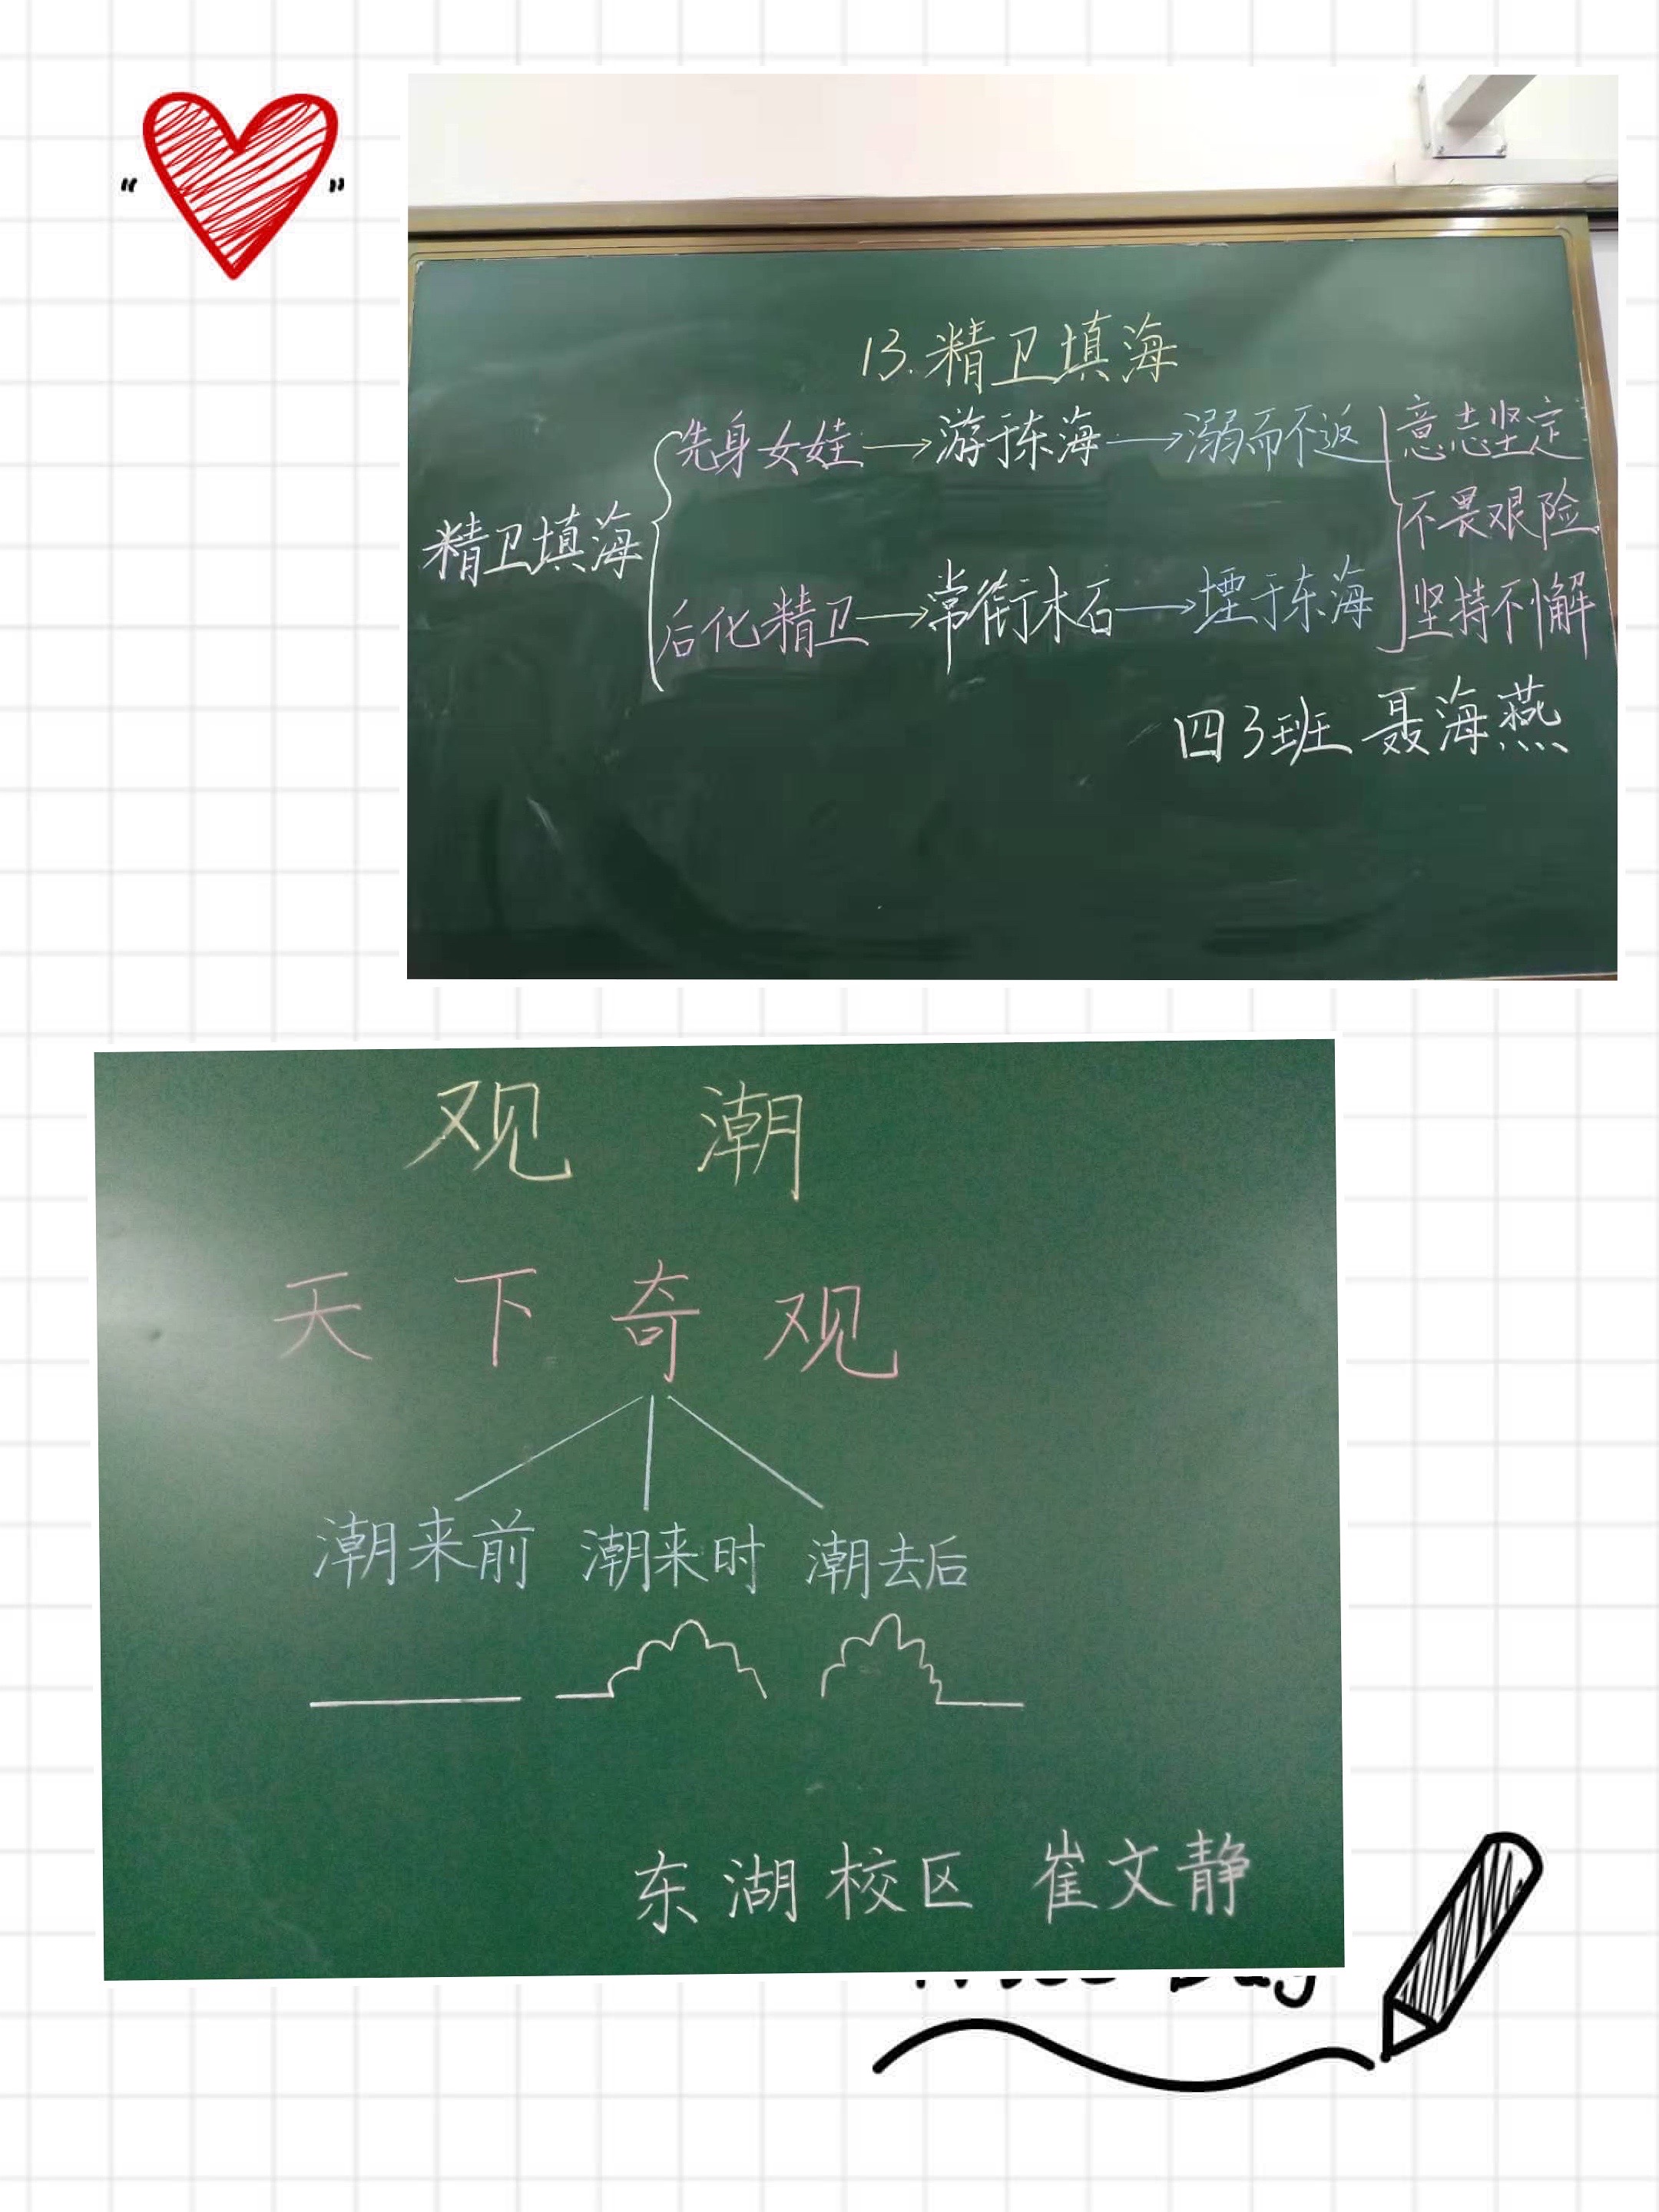 “ ”
13.精卫填海
先身女娃→游于东海→溺而不返
精卫填海
后化精卫→常衔木石→堙于东海
意志坚定
不畏艰险
坚持不懈
四3班 聂海燕
观 潮
天 下 奇 观
潮来前 潮来时 潮去后
东湖校区 崔文静